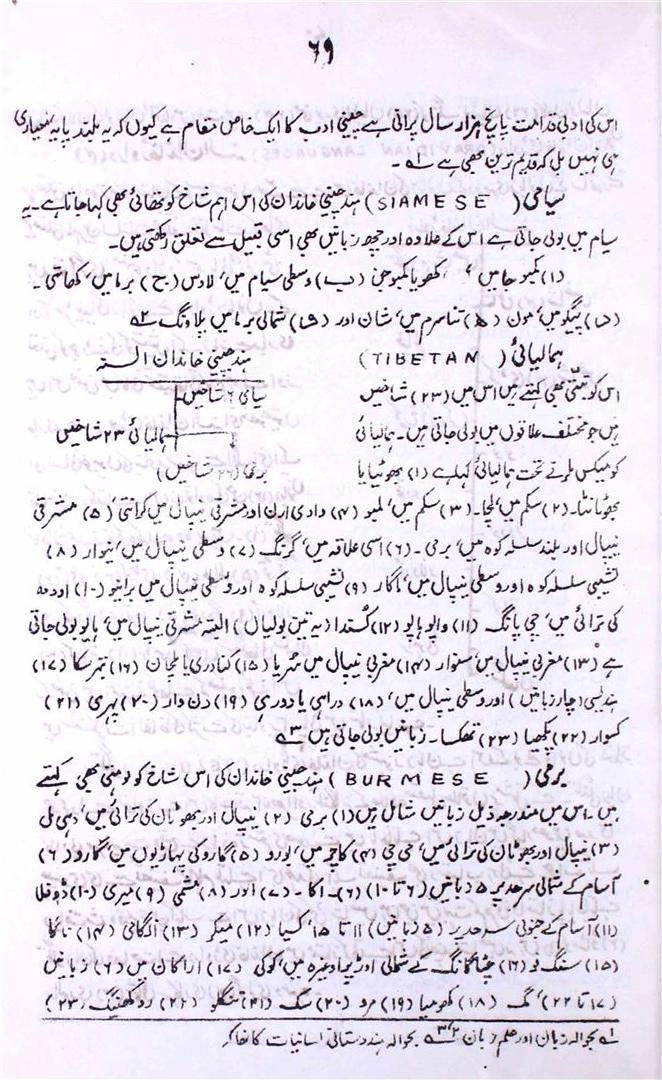 ۶۹
اس کی ادبی قدامت پانچ ہزار سال پرانی ہے چینی ادب کا ایک خاص مقام ہے کیوں کہ یہ بلند پایہ معیاری
ہی نہیں بل کہ قدیم ترین بھی ہے ۱؎۔
سیامی (SIAMESE) ہند چینی خاندان کی اس اہم شاخ کو تھائی بھی کہا جاتا ہے۔ یہ
سیام میں بولی جاتی ہے اس کے علاوہ اور چھ زبانیں بھی اسی قبیل سے تعلق رکھتی ہیں۔
(۱) کمبوجا میں، کھمریا کمبوجی (ب) وسطی سیام میں، لاوس (ج) برما میں، کھاشی۔
(د) پیگو میں، مون (ہ) تناسرم میں، شان اور (و) شمالی برما میں پلاونگ ۲؎
ہمالیائی (TIBETAN)
ہند چینی خاندان السنہ
اس کو تبتی بھی کہتے ہیں اس میں (۲۳) شاخیں
سیامی ۶ شاخیں
ہیں جو مختلف علاقوں میں بولی جاتی ہیں۔ ہمالیائی
ہمالیائی ۲۳ شاخیں
کو میکس ملر نے تحت ہمالیائی کہا ہے (۱) بھوٹیا یا
برمی ( شاخیں)
بھوٹانٹا۔ (۲) سکم میں، لپچا۔ (۳) سکم میں، لمبو (۴) وادی ارن اور مشرقی نیپال میں کرانتی (۵) مشرقی
نیپال اور بلند سلسلہ کوہ میں، برمی۔ (۶) اسی علاقہ میں، گرنگ (۷) وسطی نیپال میں، نیوار (۸)
نشیبی سلسلہ کوہ اور وسطی نیپال میں، ماگار (۹) نشیبی سلسلہ کوہ اور وسطی نیپال میں براہو (۱۰) اودھ
کی ترائی میں، چی پانگ (۱۱) وایو ہایو (۱۲) کسندا (یہ تین بولیاں) البتہ مشرقی نیپال میں، ہایو بولی جاتی
ہے (۱۳) مغربی نیپال میں سنوار (۱۴) مغربی نیپال میں سرپا (۱۵) کناوری یا ملچان (۱۶) تبرسکا (۱۷)
ہندیسی (چار زبانیں) اور وسطی نیپال میں، (۱۸) دراہی یا دورہی (۱۹) دن وار (۲۰) پہری (۲۱)
کسوار (۲۲) پکھیا (۲۳) تھکسا۔ زبانیں بولی جاتی ہیں ۳؎
برمی (BURMESE) ہند چینی خاندان کی اس شاخ کو لوہتی بھی کہتے
ہیں۔ اس میں مندرجہ ذیل زبانیں شامل ہیں (۱) برمی (۲) نیپال اور بھوٹان کی ترائی میں، دھی مل
(۳) نیپال اور بھوٹان کی ترائی میں، مچی چی (۴) کاچر میں، بورو (۵) گارو کی پہاڑیوں میں گارو (۶)
آسام کے شمالی سرحد پر ۵ زبانیں (۶ تا ۱۰) (۶)۔ اکا۔ (۷) ابور (۸) مشمی (۹) میری (۱۰) ڈوفلا
(۱۱) آسام کے جنوبی سرحد پر (۵ زبانیں) ۱۱ تا ۱۵ کسیا (۱۲) میکر (۱۳) انگامی (۱۴) ناگا
(۱۵) سنگ فو (۱۶) چٹاگانگ کے شمالی اور تپرا وغیرہ میں کوکی (۱۷) اراکان میں (۶) زبانیں
(۱۷ تا ۲۲) مگ (۱۸) کھومیا (۱۹) مرو (۲۰) سک (۲۱) تنگلو (۲۲) رو کھینگ (۲۳)
۱؎ بحوالہ زبان اور علم زبان ۲، ۳؎ بحوالہ ہندوستانی لسانیات کا خاکہ